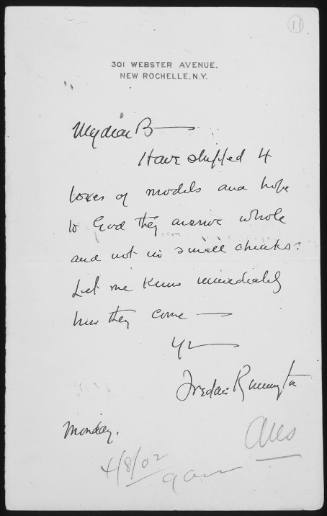 1
301 WEBSTER AVENUE.
NEW ROCHELLE, N.Y.
My dear B—
Have shipped 4
boxes of models and hope
to God they arrive whole
and not in small chunks.
Let me know immediately
how they come —
Yr—
Frederic Remington
Monday.
4/8/02